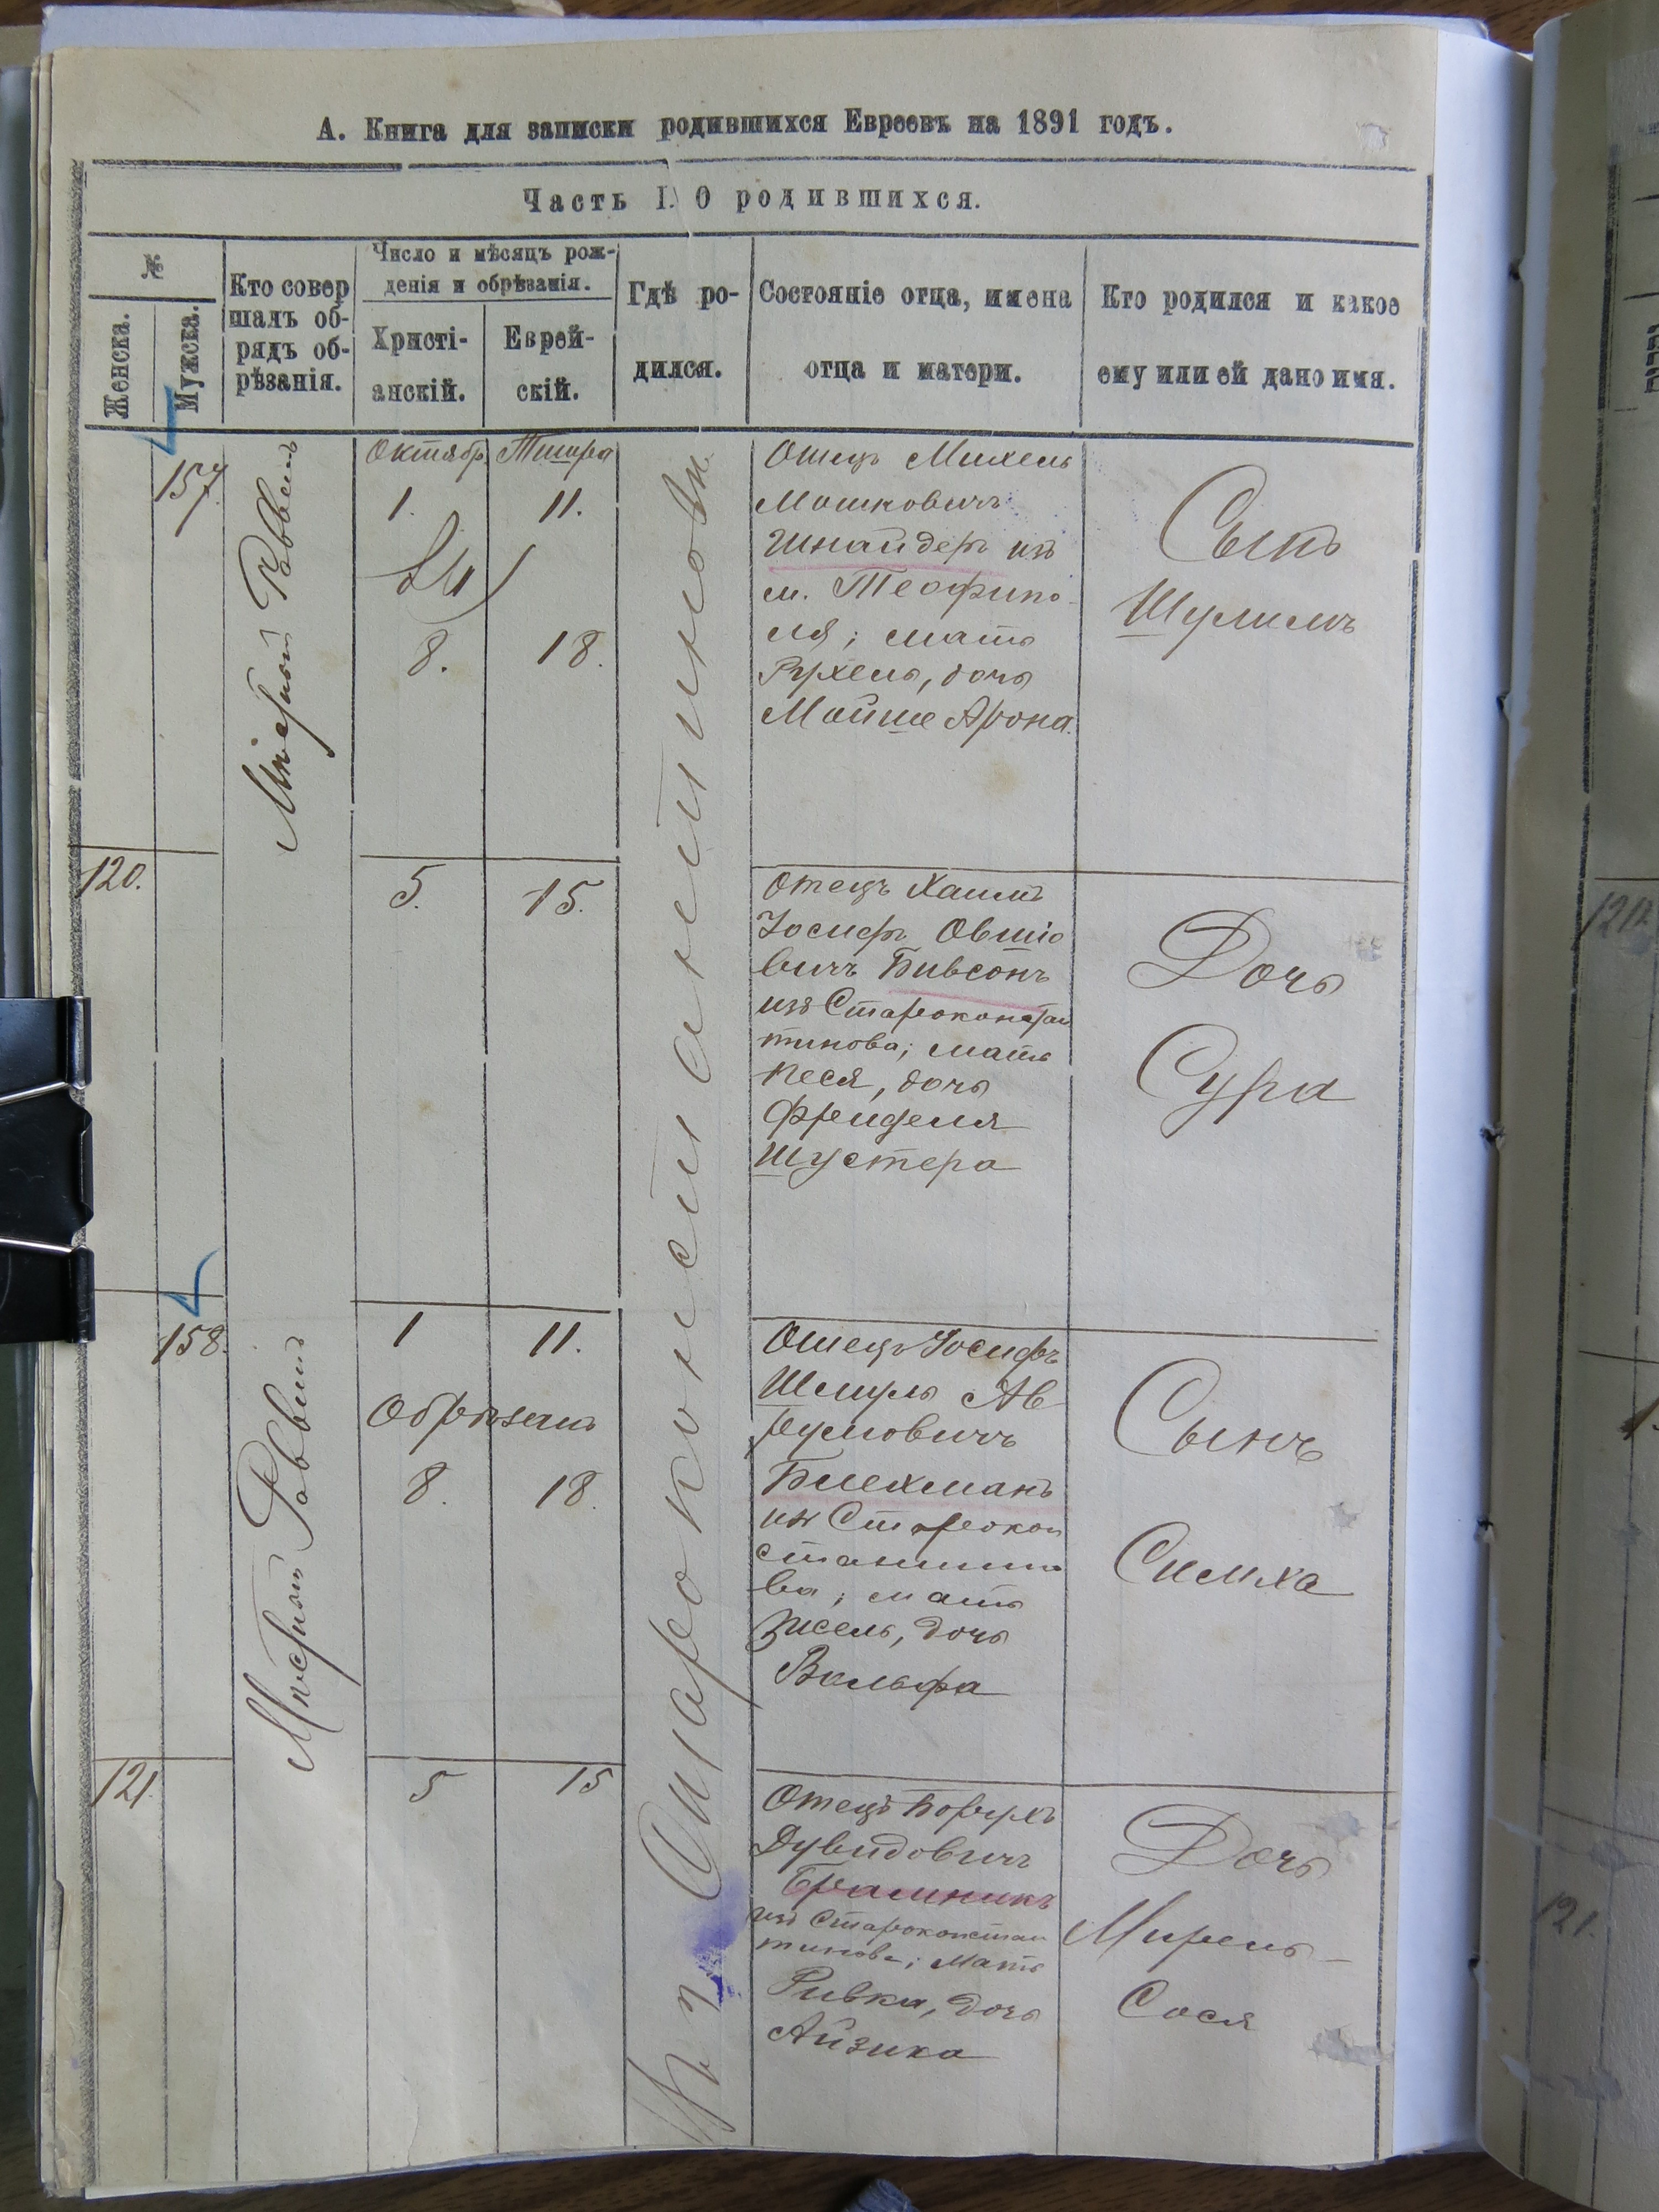 А. Книга для записки родившихся Евреевъ на 1891 годъ.
Часть I. О родившихся.
№
Женска.
Мужска.
Кто совер
шалъ об-
рядъ об-
рѣзанія.
Число и мѣсяцъ рож-
денія и обрѣзанія.
Христі-
анскій.
Еврей-
скій.
Гдѣ ро-
дился.
Состояніе отца, имена
отца и матери.
Кто родился и какое
ему или ей дано имя.
157
Мѣстный Раввинъ
Октябр
1.
8.
Тишра
11.
18.
Въ г. Староконстантиновѣ
Отецъ Михель
Мошковичъ
Шнайдеръ изъ
м. Теофипо-
ля; мать
Рухель, дочь
Мойше Арона.
Сынъ
Шулимъ
120.
5.
15.
Отецъ Хаимъ
Іосифъ Овшіо
вичъ Бивсонъ
изъ Староконстан
тинова; мать
Песя, дочь
Фрейделя
Шустера
Дочь
Сура
158.
Мѣстный Раввинъ
1
11.
Обрѣзанъ
8.
18.
Отецъ Іосифъ
Шмуль Ав
румовичъ
Блехманъ
изъ Старокон
стантино
ва; мать
Зисель, дочь
Вольфа
Сынъ
Симха
121.
5
15
Отецъ Борухъ
Дувидовичъ
Брамникъ
изъ Староконстан
тинова; мать
Ривка, дочь
Айзика
Дочь
Мирель-
Сося
121.